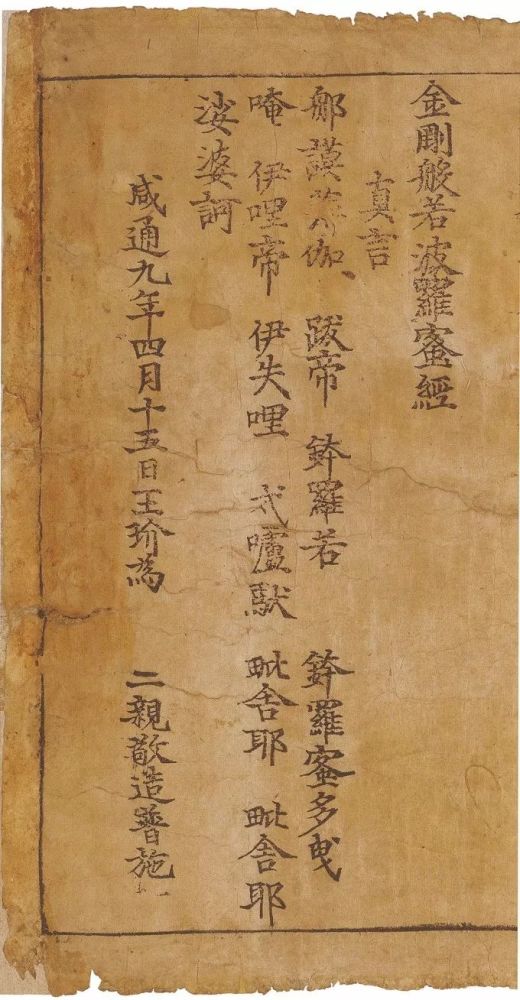 金剛般若波羅蜜經
真言
那謨 伽 跋帝 鉢羅若 鉢羅蜜多曳
唵 伊哩帝 伊失哩 戍嚧馱 毗舍耶 毗舍耶
娑婆訶
咸通九年四月十五日王玠為 二親敬造普施